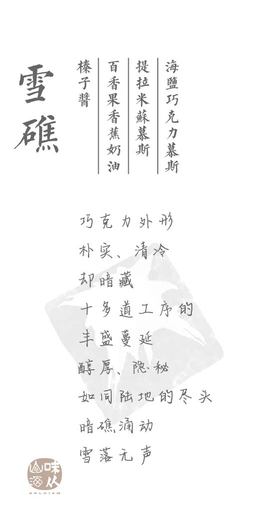 雪礁
海鹽巧克力慕斯
提拉米蘇慕斯
百香果香蕉奶油
榛子醬
巧克力外形
朴实、清冷
却暗藏
十多道工序的
丰盛蔓延
醇厚、隐秘
如同陆地的尽头
暗礁涌动
雪落无声